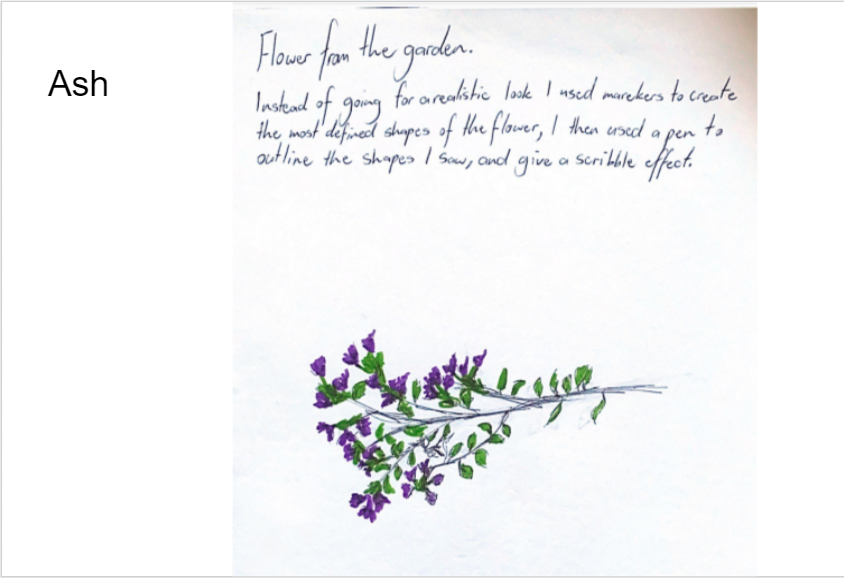 Ash
Flower from the garden.
Instead of going for a realistic look I used marekers to create
the most defined shapes of the flower, I then used a pen to
outline the shapes I saw, and give a scribble effect.